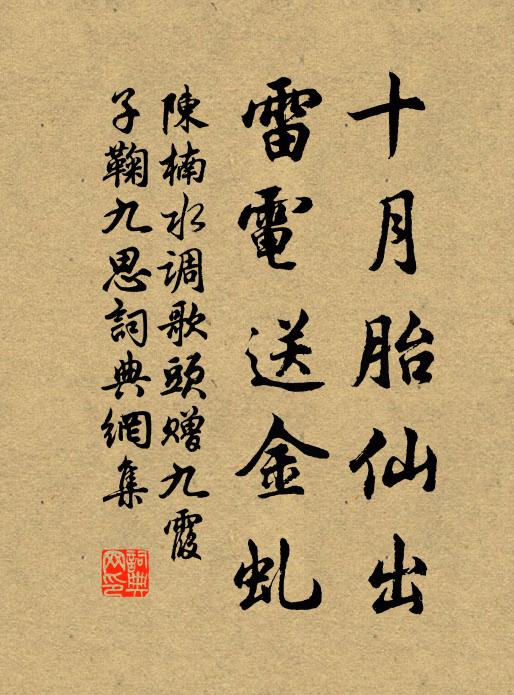 十月胎仙出
雷電送金虬
陳楠水调歌頭赠九霞
子鞠九思詞典網集
詞典網印